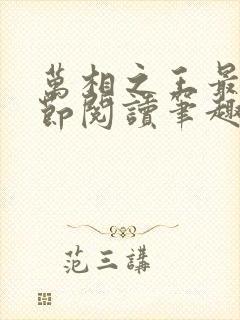 萬相之王最
節閱讀筆趣
范三講